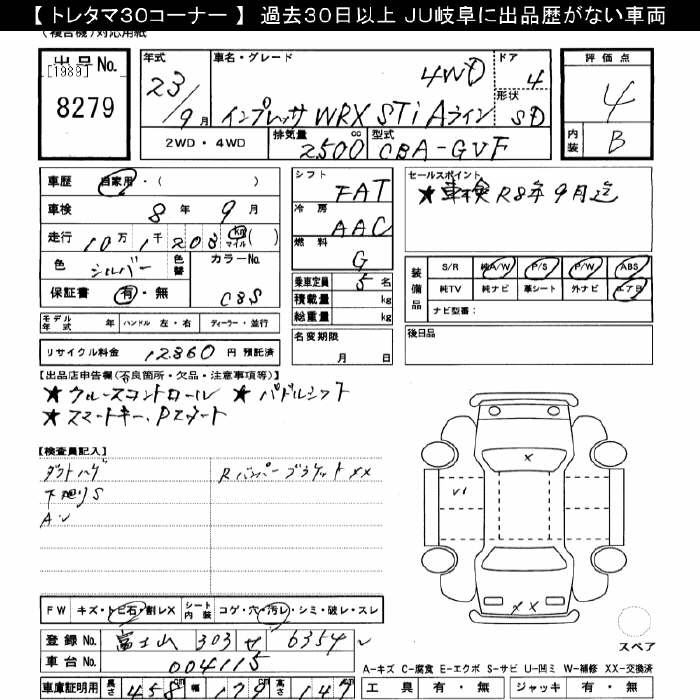 【 トレタマ30コーナー 】 過去30日以上 JU岐阜に出品歴がない車両
(複合機)対応用紙
出品No.
[1989]
8279
年式
23/9月
車名・グレード
4WD
インプレッサ WRX STi Aライン
ドア
4
形状
SD
2WD・4WD
排気量
2500cc
型式
CBA-GVF
評価点
4
内装
B
車歴 自家用・( )
車検 8年 9月
走行 10万 1千 203 km マイル ( )
色 シルバー 色替
カラーNo.
C8S
保証書 有・無
モデル年式 年 ハンドル 左・右 ディーラー・並行
リサイクル料金 12860 円 預託済
シフト
FAT
冷房
AAC
燃料
G
乗車定員 5名
積載量 kg
総重量 kg
名変期限
月 日
セールスポイント
★車検 R8年9月迄
装備品
S/R 純A/W P/S P/W ABS
純TV 純ナビ 革シート 外ナビ エアB
ナビ型番:
後日品
【出品店申告欄(不良箇所・欠品・注意事項等)】
★クルーズコントロール ★パドルシフト
★スマートキー、Pスタート
【検査員記入】
ダクトハゲ
下廻りS
Rバンパーブラケット XX
X
XX
FW キズ・トビ石・割レX シート内装 コゲ・穴・汚レ・シミ・破レ・スレ
登録No. 富士山 303 せ 6354
車台No. 004115
車庫証明用 長さ 458cm 幅 179 高さ 147
スペア
A-キズ C-腐食 E-エクボ S-サビ U-凹ミ W-補修 XX-交換済
工具 有・無 ジャッキ 有・無